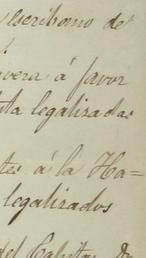 y escribano de
vera á favor
ta legalizadas
tes á la Ha=
legalizados
del Cabeta